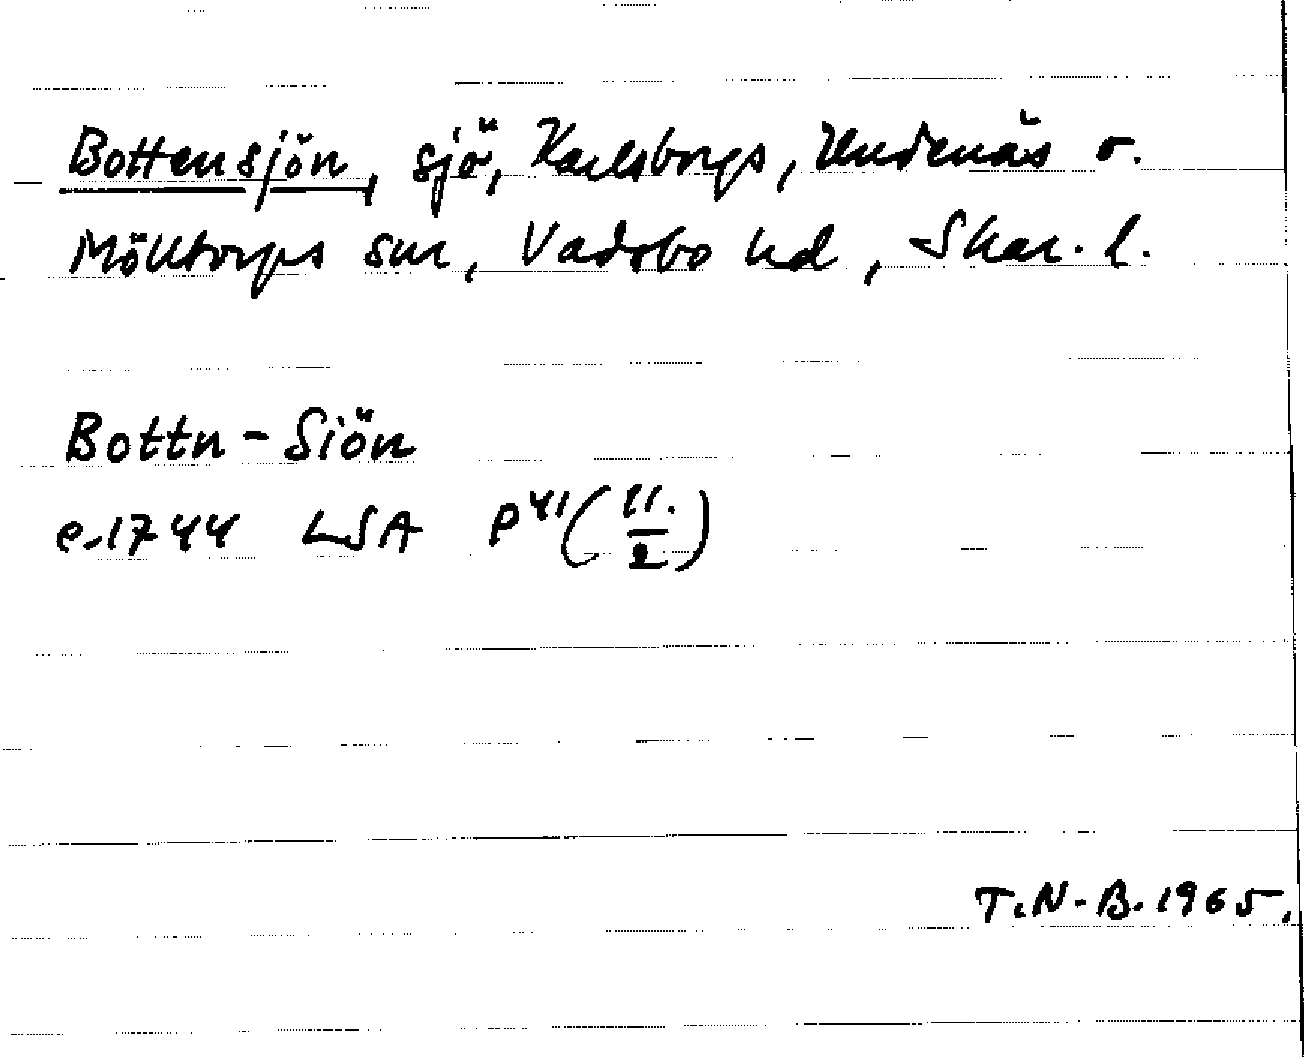 Bottensjön, sjö, Karlsborgs, Undenäs o.
Mölltorps snr, Vadsbo hd, Skar. l.
Bottn-Siön
e.1744 LSA P41(11./2)
T.N-B. 1965.